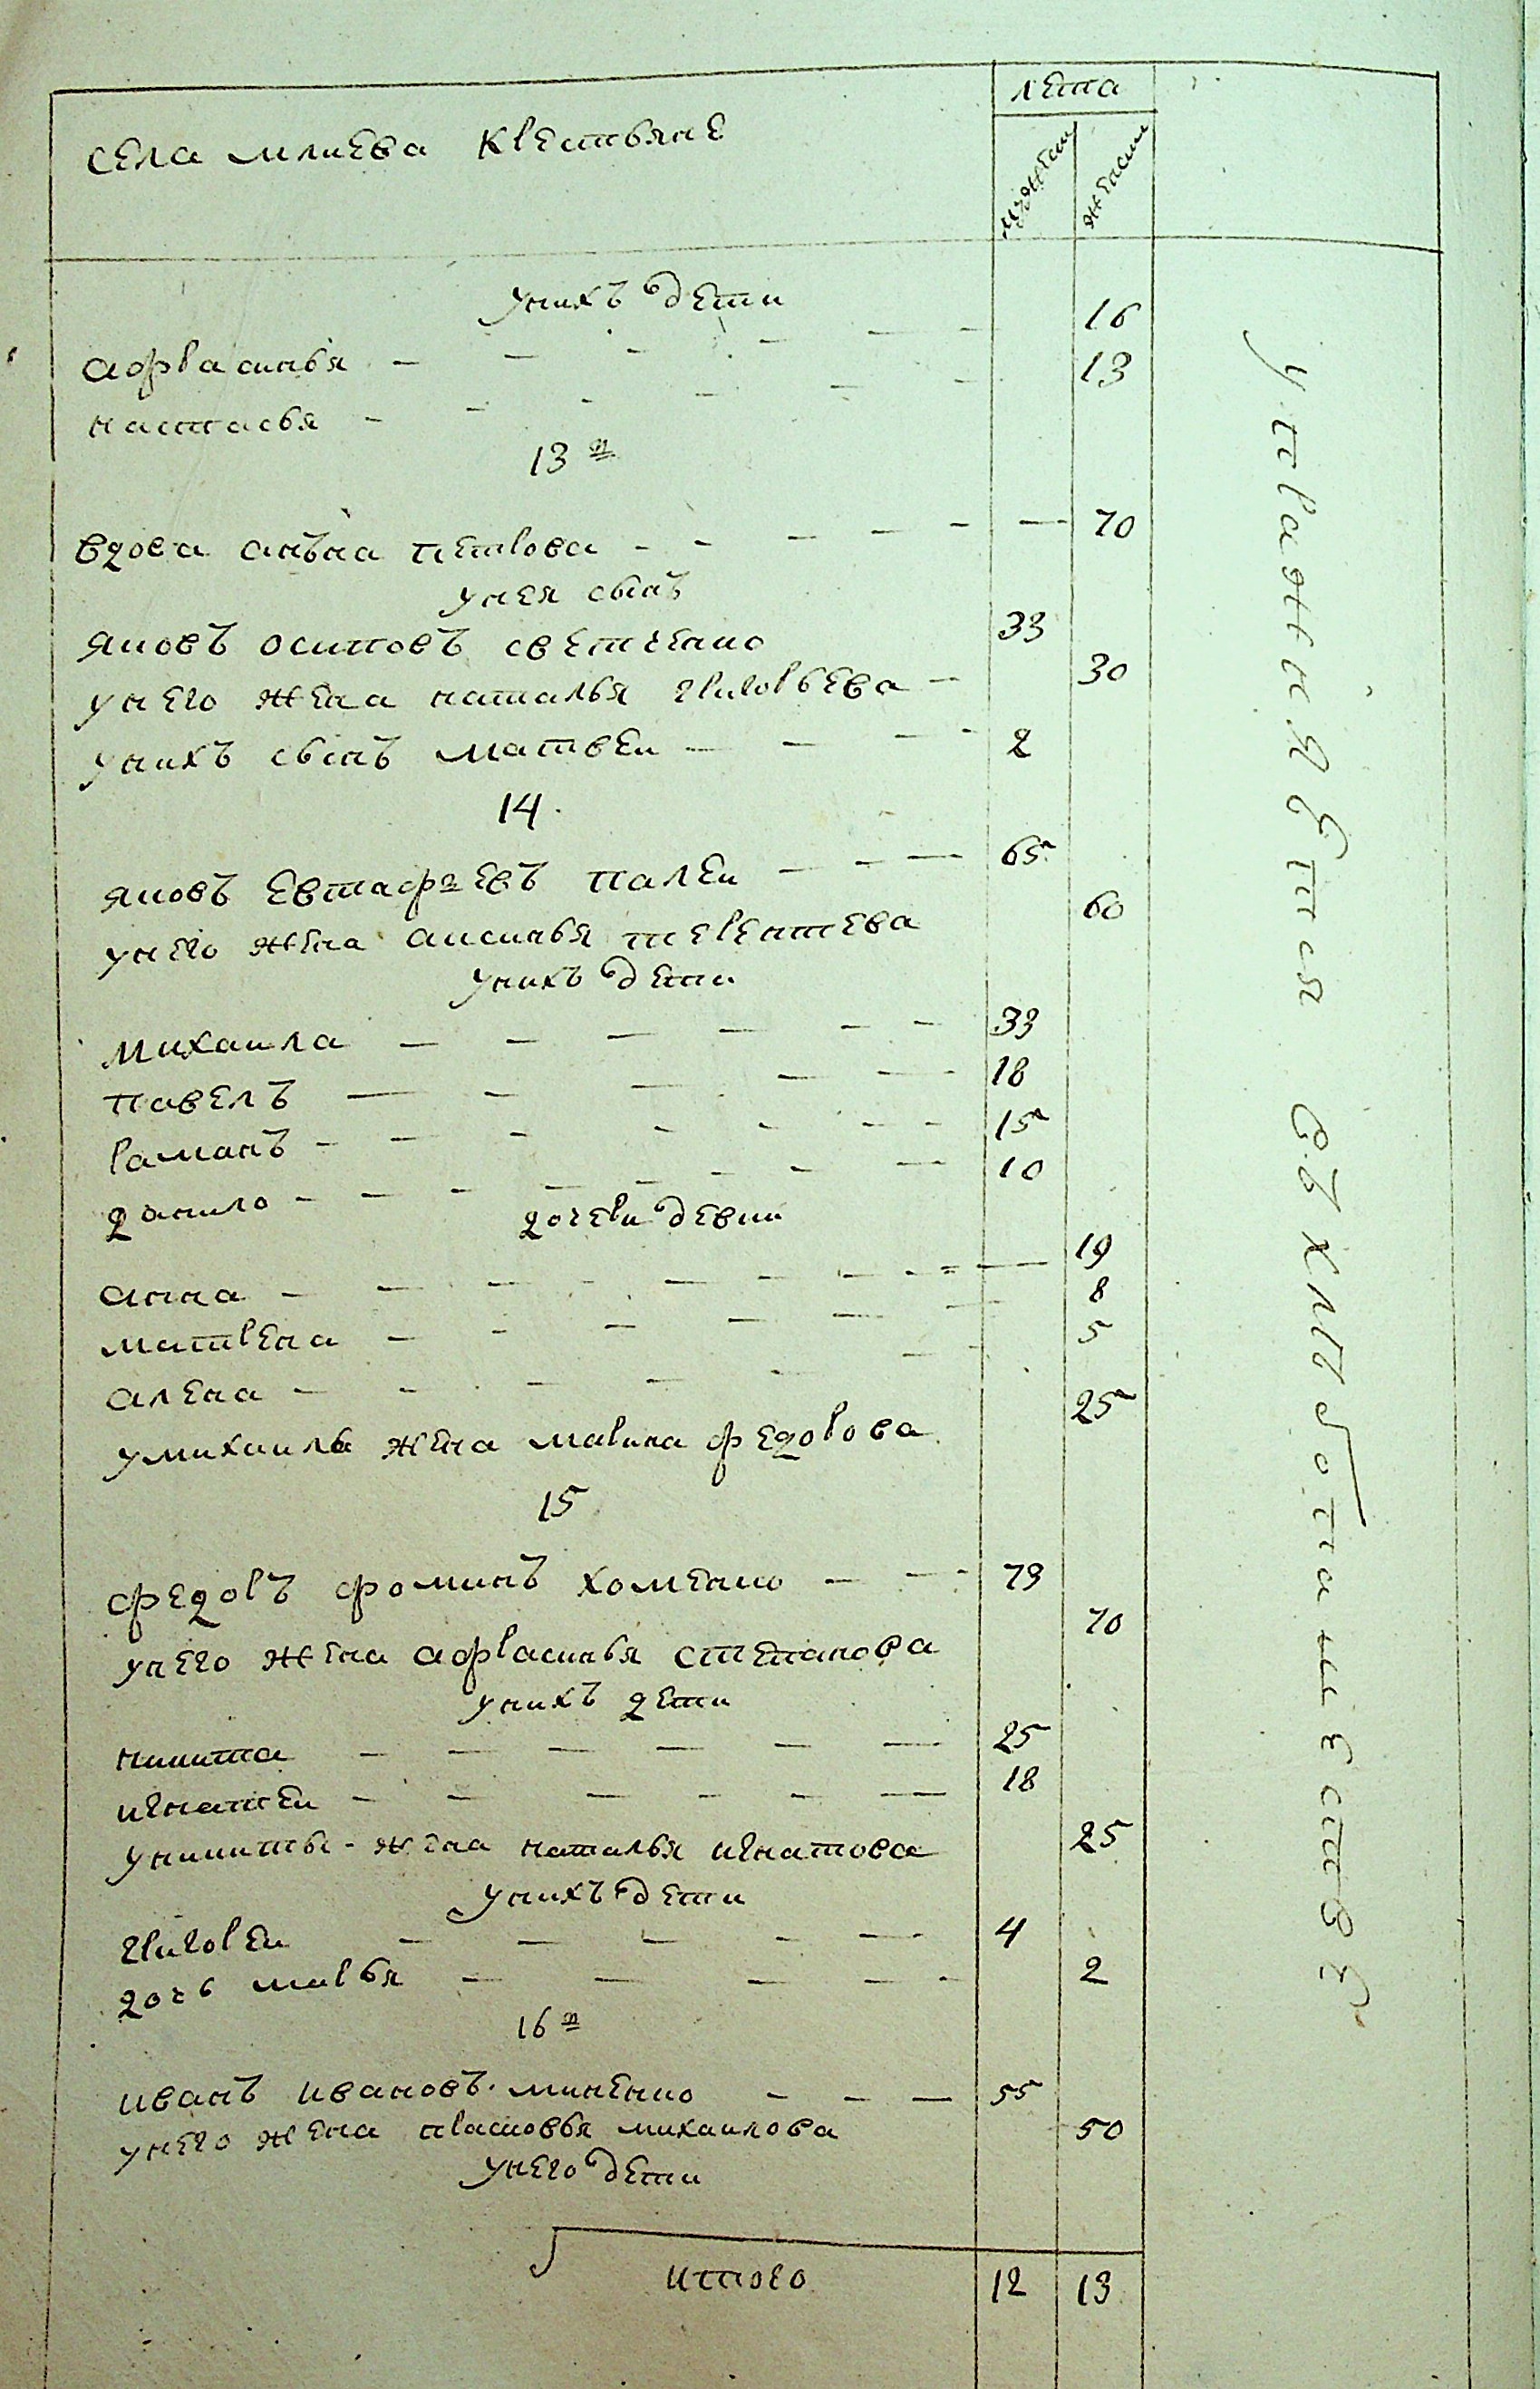 села млиева крестьяне
лета
мужески
женски
у нихъ дети
афрасинья 16
настасья 13
13 й
вдова анъна петрова 70
у нея сынъ
яковъ осиповъ светченко 33
у него жена наталья григорьева 30
у нихъ сынъ матвеи 2
14.
яковъ евтафиевъ палеи 65
у него жена аксинья терентева 60
у нихъ дети
михаила 33
павелъ 18
раманъ 15
данило 10
дочери девки
анна 19
матрена 8
алена 5
у михаилы жена марина федорова 25
15
федоръ фоминъ хоменко 73
у него жена афрасинья степанова 70
у нихъ дети
никита 25
игнатеи 18
у никиты жена наталья игнатова 25
у нихъ дети
григореи 4
дочь марья 2
16 й
иванъ ивановъ миненко 55
у него жена прасковья михаилова 50
у него дети
итого 12 13
упражняется в хлебопашестве